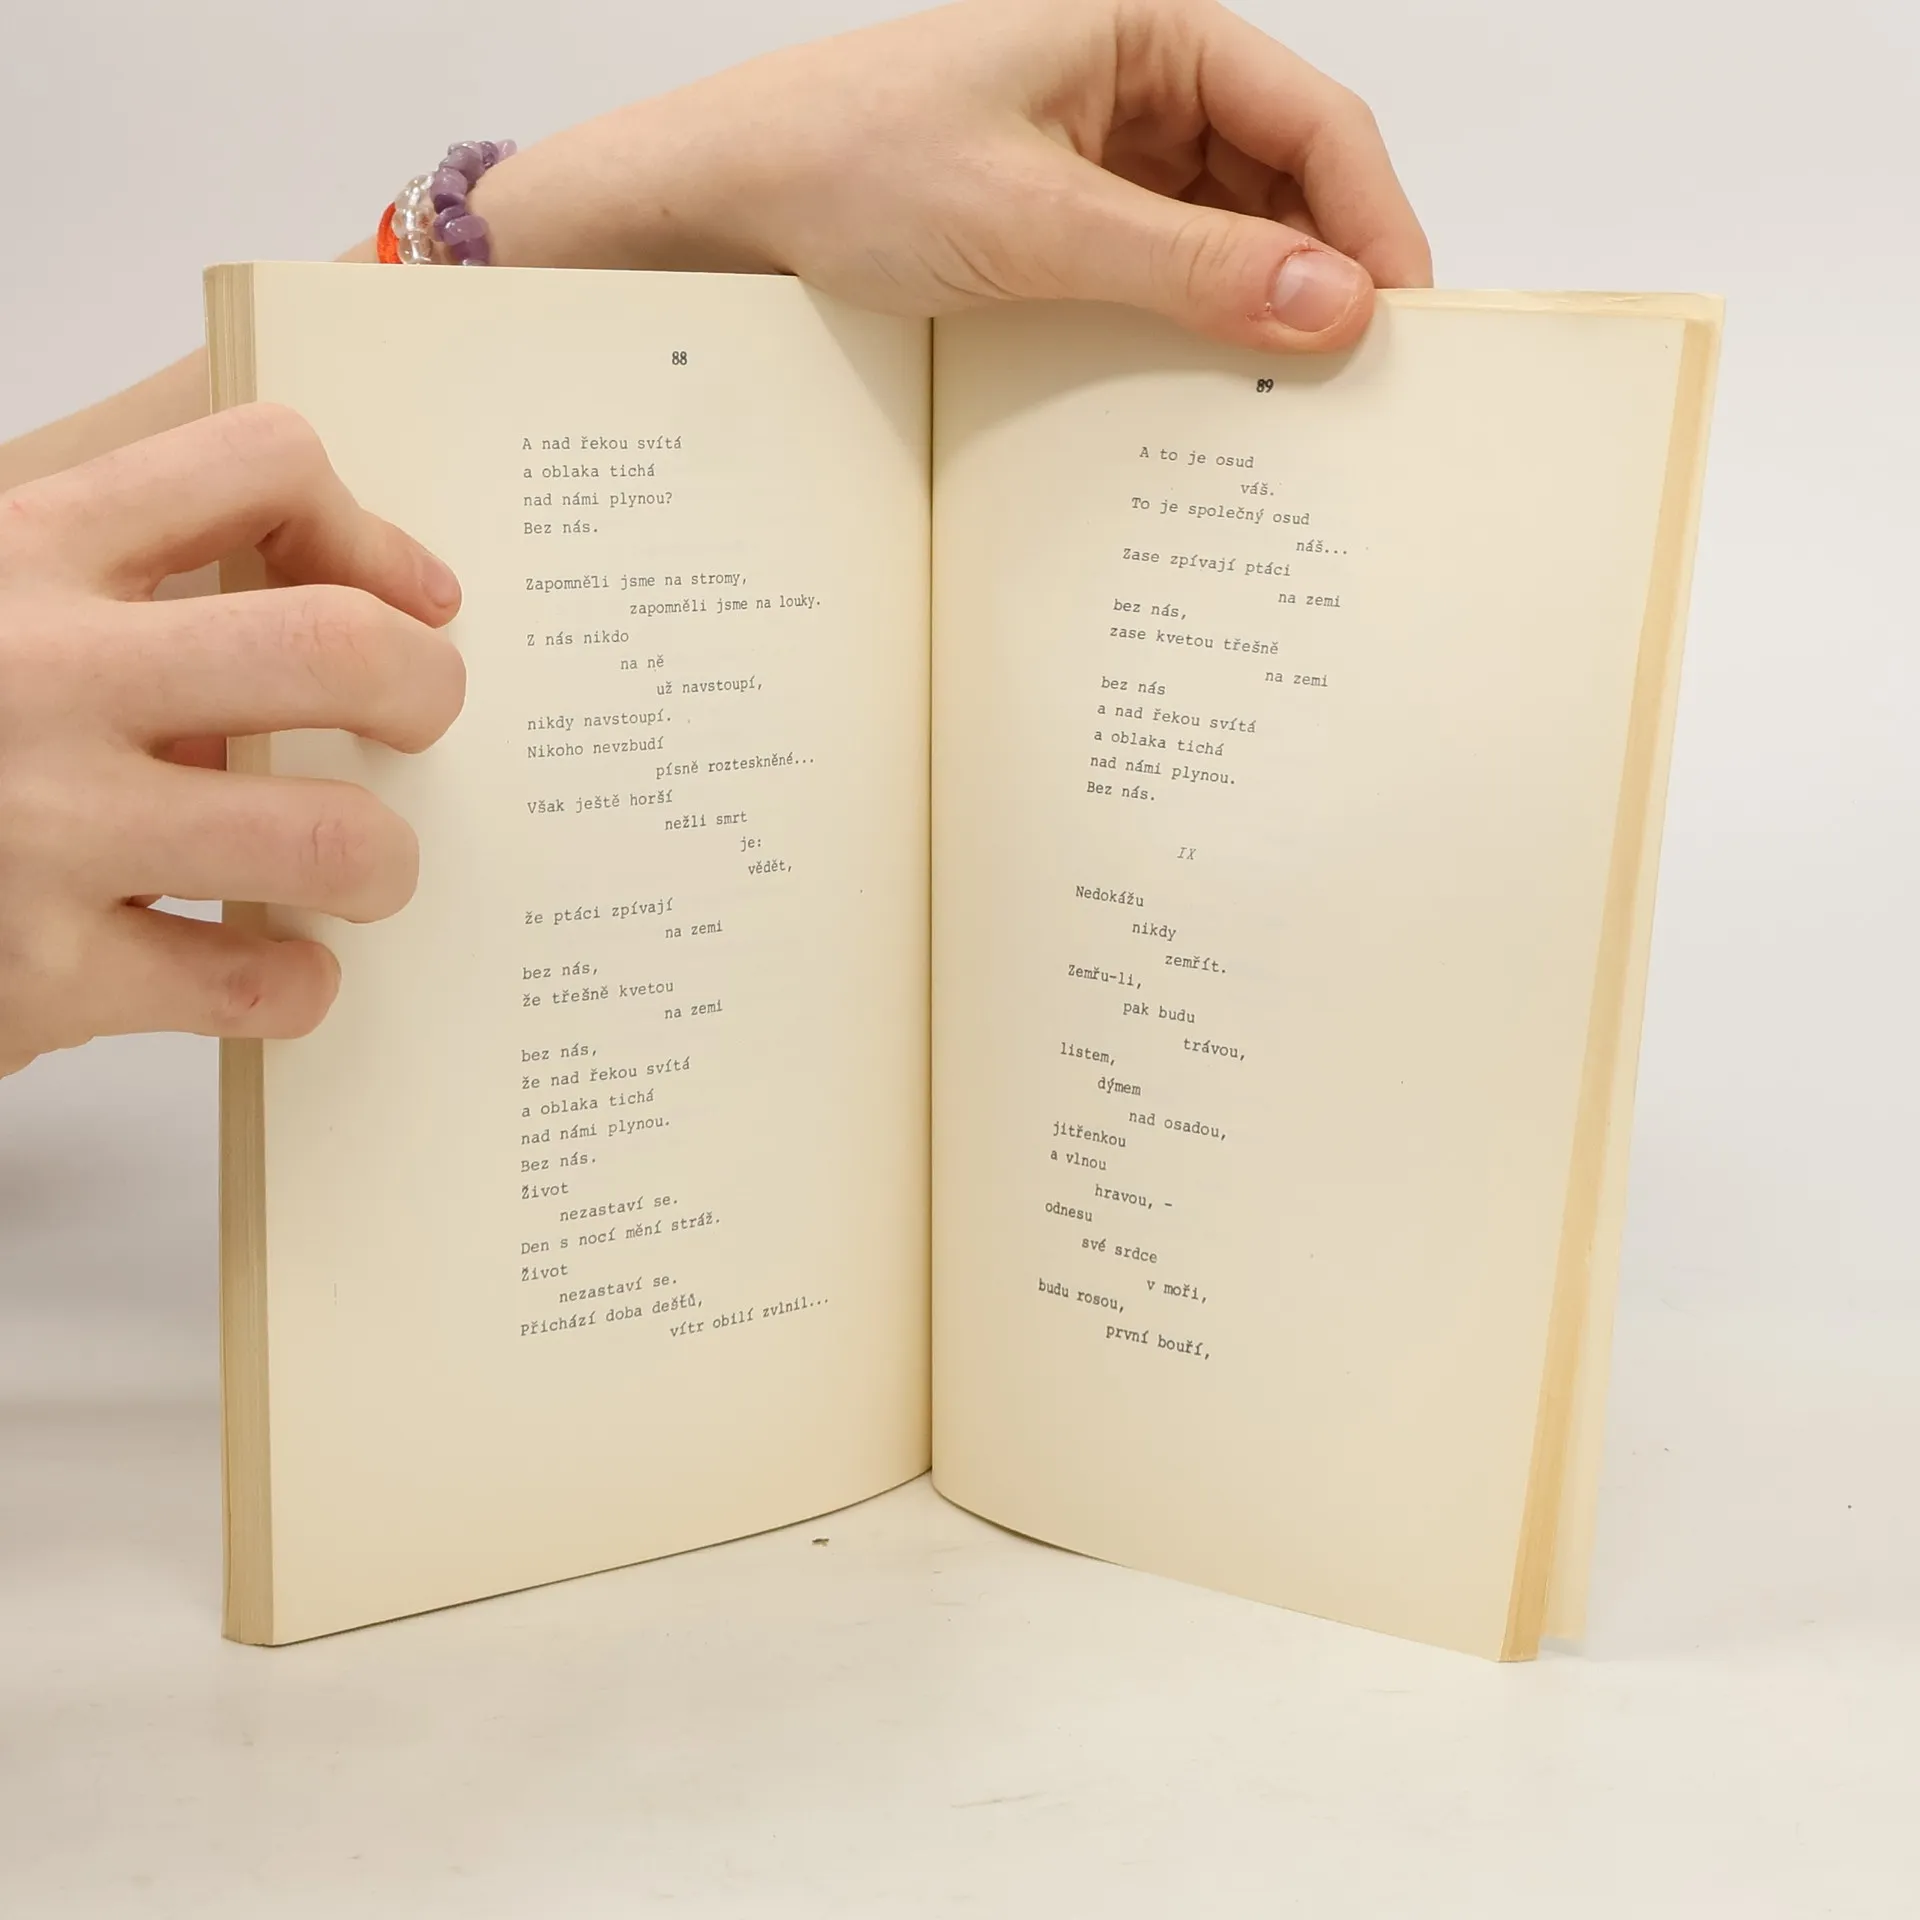 88
A nad řekou svítá
a oblaka tichá
nad námi plynou?
Bez nás.
Zapomněli jsme na stromy,
zapomněli jsme na louky.
Z nás nikdo
na ně
už navstoupí,
nikdy navstoupí.
Nikoho nevzbudí
písně rozteskněné...
Však ještě horší
nežli smrt
je:
vědět,
že ptáci zpívají
na zemi
bez nás,
že třešně kvetou
na zemi
bez nás,
že nad řekou svítá
a oblaka tichá
nad námi plynou.
Bez nás.
Život
nezastaví se.
Den s nocí mění stráž.
Život
nezastaví se.
Přichází doba dešťů,
vítr obilí zvlnil...
89
A to je osud
váš.
To je společný osud
náš...
Zase zpívají ptáci
na zemi
bez nás,
zase kvetou třešně
na zemi
bez nás
a nad řekou svítá
a oblaka tichá
nad námi plynou.
Bez nás.
IX
Nedokážu
nikdy
zemřít.
Zemřu-li,
pak budu
trávou,
listem,
dýmem
nad osadou,
jitřenkou
a vlnou
hravou, -
odnesu
své srdce
v moři,
budu rosou,
první bouří,